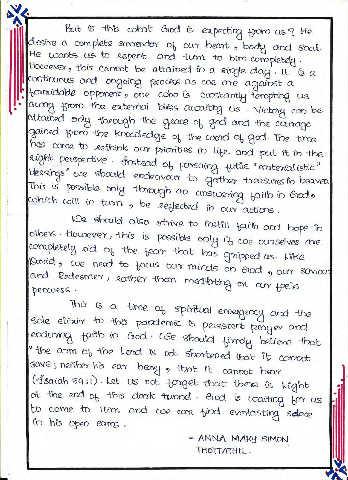 But is this what God is expecting from us? He
desire a complete surrender of our heart, body and soul.
He wants us to repent and turn to him completely.
However, this cannot be attained in a single day. It is a
continuous and ongoing process as we are against a
formidable opponent, one who is constantly tempting us
away from the external bliss awaiting us. Victory can be
attained only through the grace of god and the courage
gained from the knowledge of the word of god. The time
has come to rethink our priorities in life and put it in the
right perspective. Instead of pursuing futile "materialistic
blessings" we should endeavour to gather treasures in heaven.
This is possible only through an unswerving faith in God,
which will in turn, be reflected in our actions.
We should also strive to instill faith and hope in
others. However, this is possible only if we ourselves are
completely rid of the fear that has gripped us. Like
David, we need to focus our minds on God, our saviour
and Redeemer, rather than meditating on our foe's
prowess.
This is a time of spiritual emergency and the
sole elixir to this pandemic is persistent prayer and
enduring faith in God. We should firmly believe that
"the arm of the Lord is not shortened that it cannot
save; neither his ear heavy, that it cannot hear
(Isaiah 59:1). Let us not forget that there is light
at the end of this dark tunnel. God is waiting for us
to come to Him and we can find everlasting solace
in his open arms.
- ANNA MARY SIMON